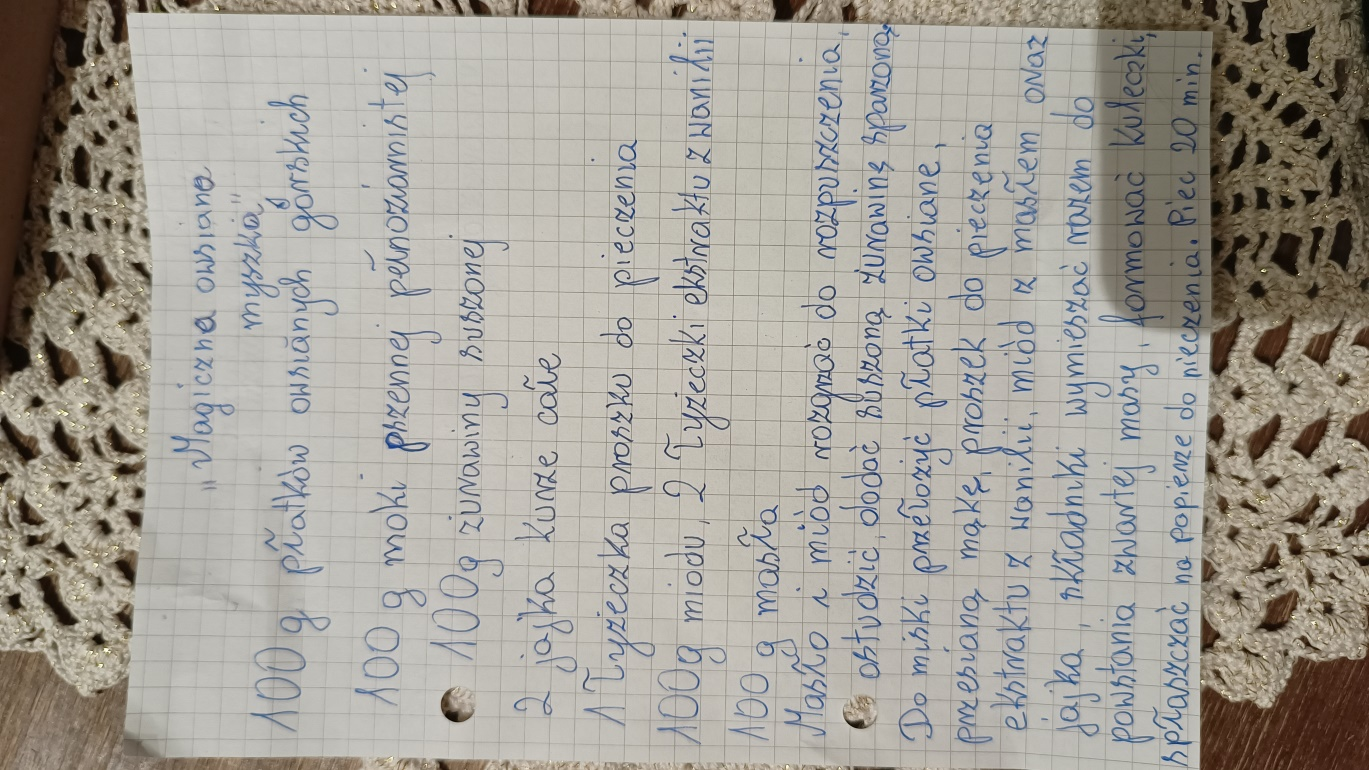 "Magiczna owsiana
myszka"
100 g płatków owsianych górskich
100 g moki pszennej pełnoziarnistej
100g żurawiny suszonej
2 jajka kurze całe
1 łyżeczka proszku do pieczenia
100g miodu, 2 łyżeczki ekstraktu z wanilii
100 g masła
Masło i miód rozgrzać do rozpuszczenia,
ostudzić, dodać suszoną żurawinę sparzoną
Do miski przełożyć płatki owsiane,
przesianą mąkę, proszek do pieczenia
ekstraktu z wanilii, miód z masłem oraz
jajka, składniki wymieszać razem do
powstania zwartej masy, formować kuleczki,
spłaszczać na papierze do pieczenia. Piec 20 min.